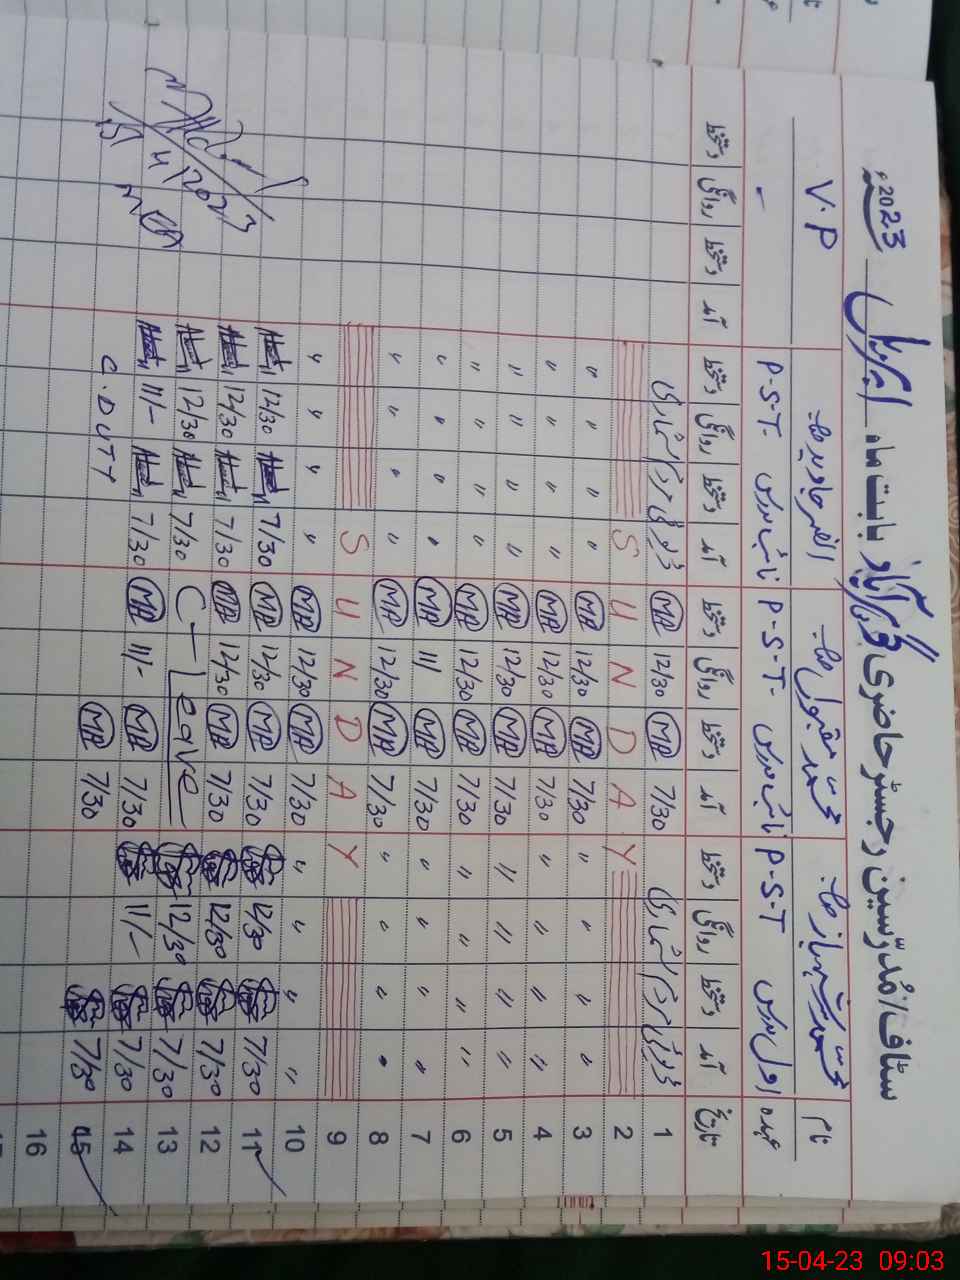 سٹاف/مُدرّسین رجسٹر حاضری گرلز بابت ماہ اپریل 2023ء
نام محمد شہباز صاحب محمد مقبول صاحب اظہر جاوید صاحب V.P
عہدہ اول مدرس P-S-T نائب مدرس P-S-T- نائب مدرس P-S-T- -
تاریخ آمد دستخط روانگی دستخط آمد دستخط روانگی دستخط آمد دستخط روانگی دستخط آمد دستخط روانگی دستخط
1 ڈیوٹی مردم شماری 7/30 MA 12/30 MA ڈیوٹی مردم شماری
2 Y A D N U S
3 " " " " 7/30 MA 12/30 MA " " " "
4 " " " " 7/30 MA 12/30 MA " " " "
5 " " " " 7/30 MA 12/30 MA " " " "
6 " " " " 7/30 MA 12/30 MA " " " "
7 " " " " 7/30 MA 11/- MA " " " "
8 " " " " 7/30 MA 12/30 MA " " " "
9 Y A D N U S
10 " " " " 7/30 MA 12/30 MA " " " "
11 7/30 12/30 7/30 MA 12/30 MA 7/30 12/30
12 7/30 12/30 7/30 MA 12/30 MA 7/30 12/30
13 7/30 12/30 C-Leave 7/30 12/30
14 7/30 11/- 7/30 MA 11/- MA 7/30 11/-
15 7/30 7/30 MA C.DUTT
15/4/2023
16
15-04-23 09:03